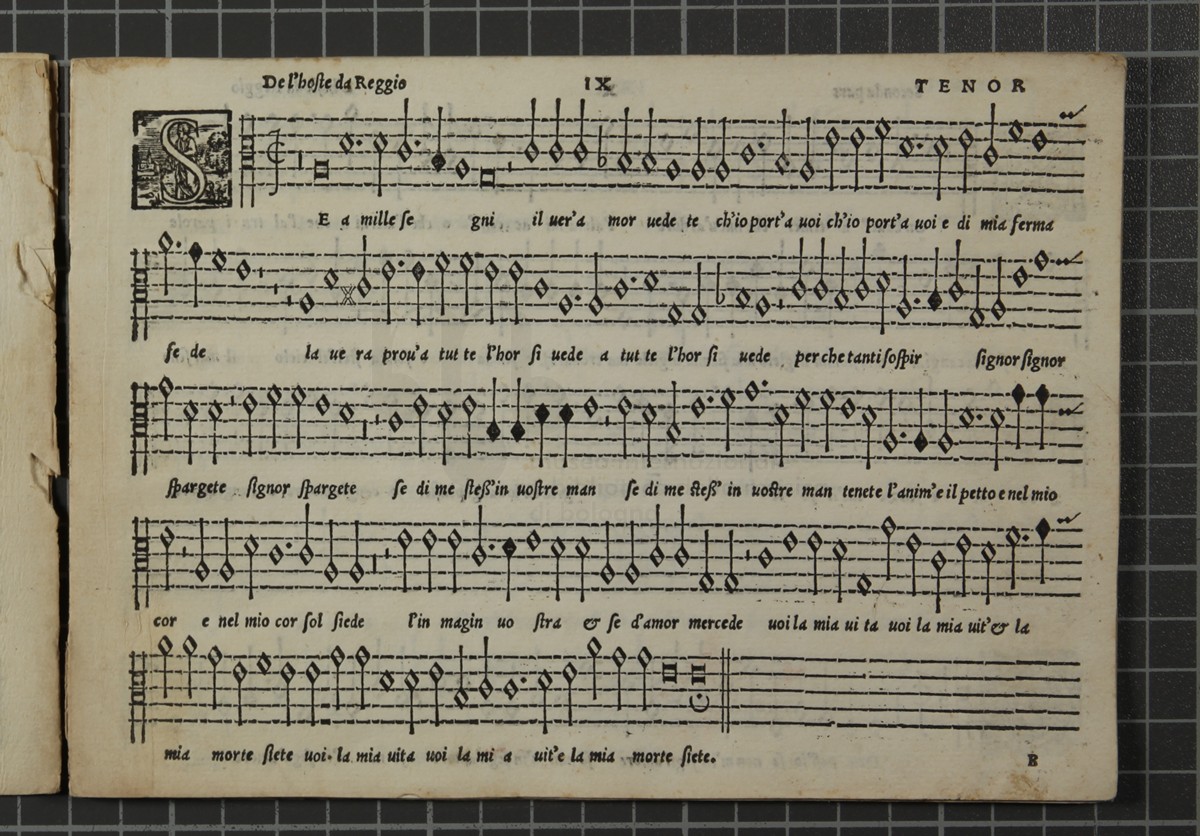 De l'hoste da Reggio IX TENOR
SE a mille se gni il uer'a mor uede te ch'io port'a uoi ch'io port'a uoi e di mia ferma
fe de la ue ra prou'a tut te l'hor si uede a tut te l'hor si uede per che tanti sospir signor signor
spargete signor spargete se di me stess'in uostre man se di me stess' in uostre man tenete l'anim'e il petto e nel mio
cor e nel mio cor sol siede l'in magin uo stra & se d'amor mercede uoi la mia ui ta uoi la mia uit'& la
mia morte siete uoi. la mia uita uoi la mi a uit'e la mia morte siete.
B